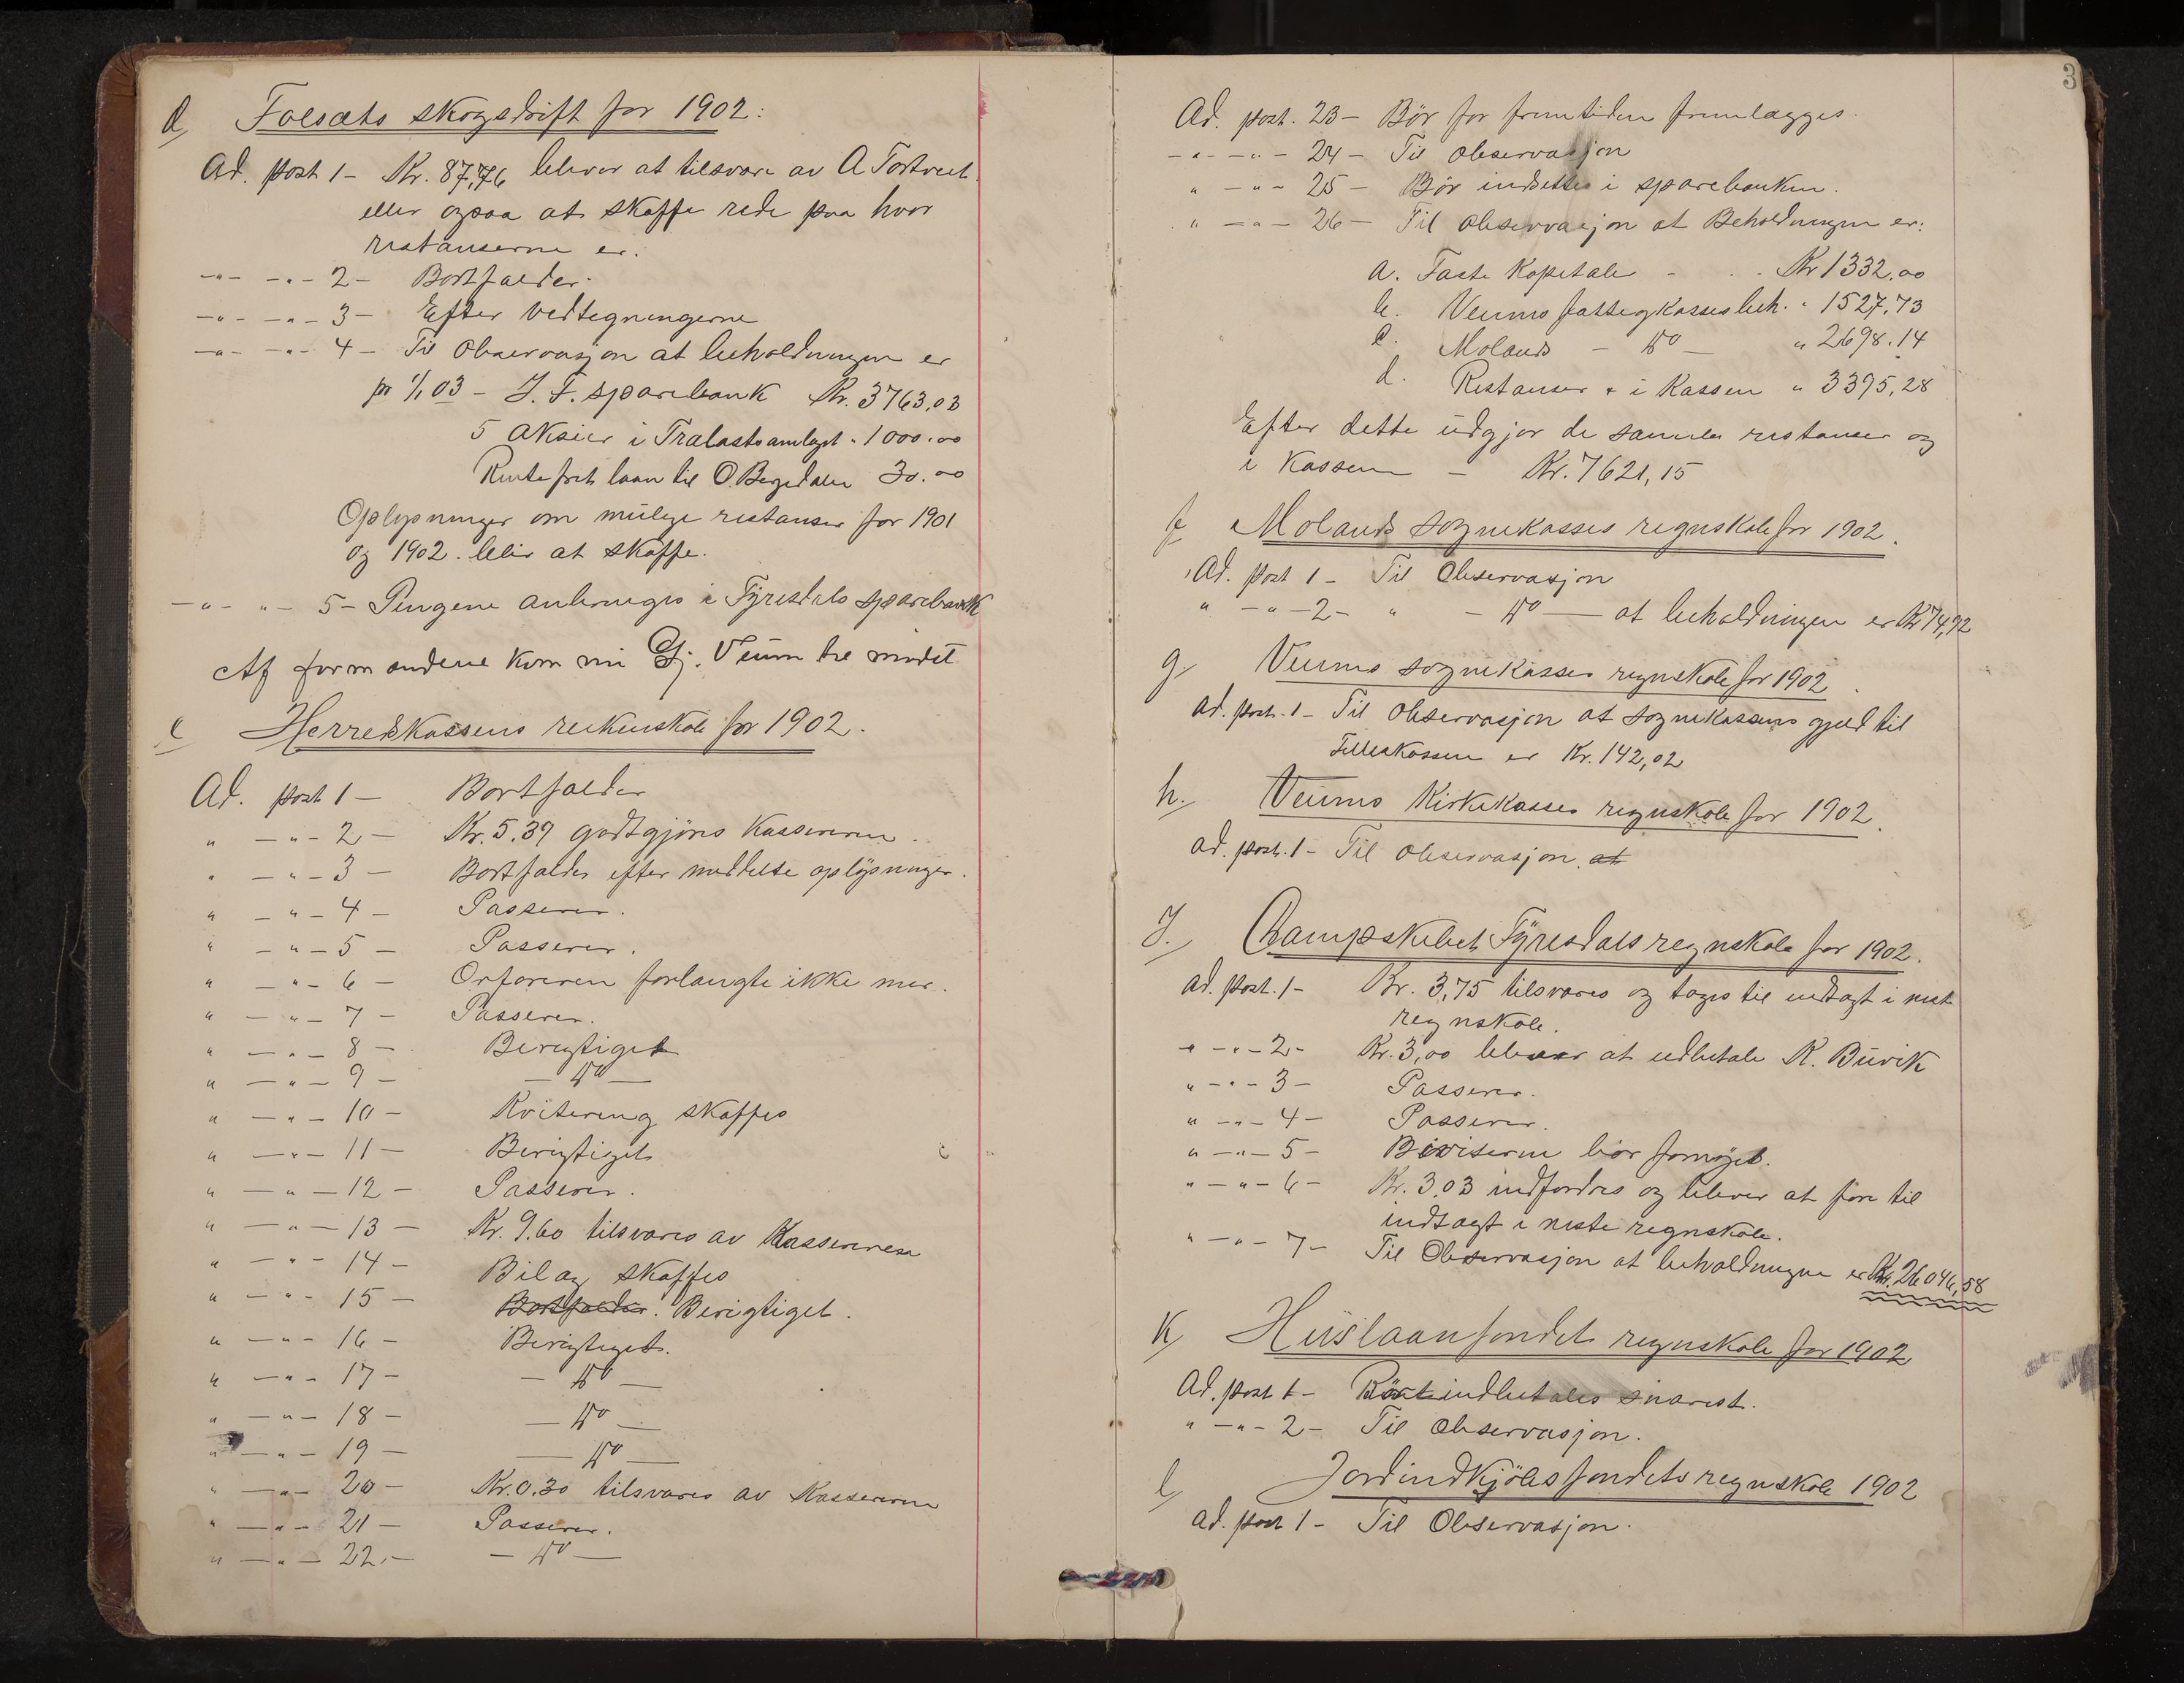 d/ Folsæts skogsdrift for 1902:
Ad. post 1 - Kr. 87,76 blever at tilsvare av A Tortveit.
eller ogsaa at skaffe rede paa hvor
restanserne er.
-"- -"- 2 - Bortfalder.
-"- -"- 3 - Efter vedtegningerne
-"- -"- 4 - Til Observasjon at beholdningen er
pr 1/1 03 - I. F. sparebank Kr. 3763,03
5 Aksier i Tralastsamlaget " 1000.00
Rentefrit laan til O. Bergdalen 30.00
Oplysninger om mulige restanser for 1901
og 1902. blir at skaffe.
-"- "- 5 - Pengene anbringes i Tyresdals sparebank
Af formændene kom nu Gj. Veum til mødet
e/ Herredskassens reikenskab for 1902.
Ad. post 1 - Bortfalder
" -"- 2 - Kr. 5.39 godtgjöres Kassereren.
" -"- 3 - Bortfalder efter meddelte oplysninger.
" -"- 4 - Passerer.
" -"- 5 - Passerer.
" -"- 6 - Orføreren forlangte ikke mer.
" -"- 7 - Passerer.
" -"- 8 - Berigtiget
" -"- 9 - Do -
" -"- 10 - Kvitering skaffes
" -"- 11 - Berigtiget
" -"- 12 - Passerer.
" -"- 13 - Kr. 9.60 tilsvares av Kassereren
" -"- 14 - Bilag skaffes
" -"- 15 - Bortfalder. Berigtiget.
" -"- 16 - Berigtiget.
" -"- 17 - - Do -
" -"- 18 - - Do -
" -"- 19 - - Do -
" -"- 20 - Kr. 0.30 tilsvares av Kassereren
" -"- 21 - Passerer.
" -"- 22. - - Do -
3
Ad. post. 23 - Bör for fremtiden fremlægges.
-"- -"- 24 - Til observasjon
" -"- 25 - Bör indsettes i sparebanken.
" -"- 26 - Til observasjon at Beholdningen er:
a. Faste Kapitale - . . Kr 1332.00
b. Veums fattigkasses beh. " 1527,73
c. Molands - Do - " 2698.14
d. Restanser & i Kassen " 3395,28
Efter dette udgjør de samlede restanser og
i Kassen - Kr. 7621,15
f Molands sognekasses regnskab for 1902.
Ad. post 1 - Til Observasjon
" -"- 2 - " - Do - at beholdningen er Kr 74,92
g. Veums sognekasses regnskab for 1902.
Ad. post. 1 - Til Observasjon at sognekassens gjeld til
Fælleskassen er Kr. 142,02
h. Veums Kirkekasses regnskab for 1902.
Ad. post. 1 - Til Observasjon at
J./ Dampskibet Tyresdals regnskab for 1902.
Ad. post. 1 - Kr. 3,75 tilsvares og tages til indtægt i nest
regnskab.
" -"- 2 - Kr. 3,00 blever at udbetale K. Buvik
" -"- 3 - Passerer.
" -"- 4 - Passerer.
" -"- 5 - Beviserne bör fornyet.
" -"- 6 - Kr. 3.03 indfordres og blever at føre til
indtægt i neste regnskab.
" -"- 7 - Til Observasjon at beholdningen er Kr. 26046,58
K/ Huslaanfondet regnskab for 1902
Ad. post 1 - indbetales snarest.
" -"- 2 - Til Observasjon.
l/ Jordindkjöbsfondets regnskab 1902
Ad. post 1 - Til Observasjon.